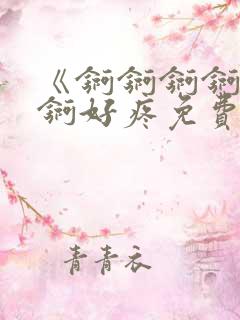 《锕锕锕锕
锕好疼免费
青青衣